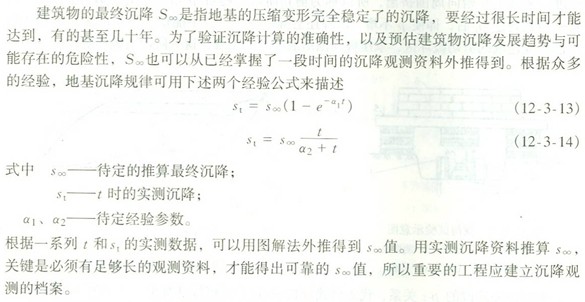 建筑物的最终沉降 S∞是指地基的压缩变形完全稳定了的沉降，要经过很长时间才能
达到，有的甚至几十年。为了验证沉降计算的准确性，以及预估建筑物沉降发展趋势与可
能存在的危险性，S∞也可以从已经掌握了一段时间的沉降观测资料外推得到。根据众多
的经验，地基沉降规律可用下述两个经验公式来描述
st = s∞(1 − e^−α1t) (12-3-13)
st = s∞ t/(α2 + t) (12-3-14)
式中 s∞——待定的推算最终沉降；
st——t 时的实测沉降；
α1、α2——待定经验参数。
根据一系列 t 和st 的实测数据，可以用图解法外推得到 s∞值。用实测沉降资料推算 s∞，
关键是必须有足够长的观测资料，才能得出可靠的 s∞值，所以重要的工程应建立沉降观
测的档案。